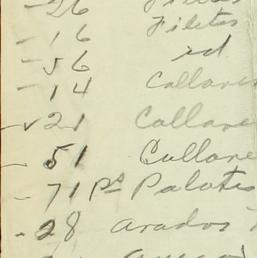 - 26
- 16 Filetes
- 56 id
- 14 Collares
- ✓ 21 Collare
- 51 Collare
- 71 Ps Palotes
- 28 Arados